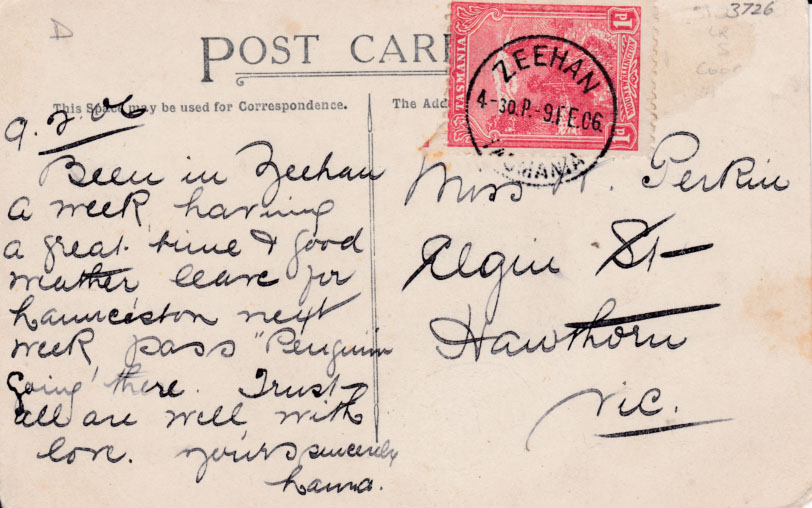 D
3726
POST CAR
TASMANIA
1d
1d
ZEEHAN
4-30.P.-9.FE.06.
TASMANIA
This Space may be used for Correspondence.
The Add
9.2.06
Been in Zeehan
a week, having
a great time & good
weather leave for
Launceston next
week, pass "Penguin
going there. Trust
all are well with
love. yours sincerely
Miss Perkin
Elgin St
Hawthorn
Vic.